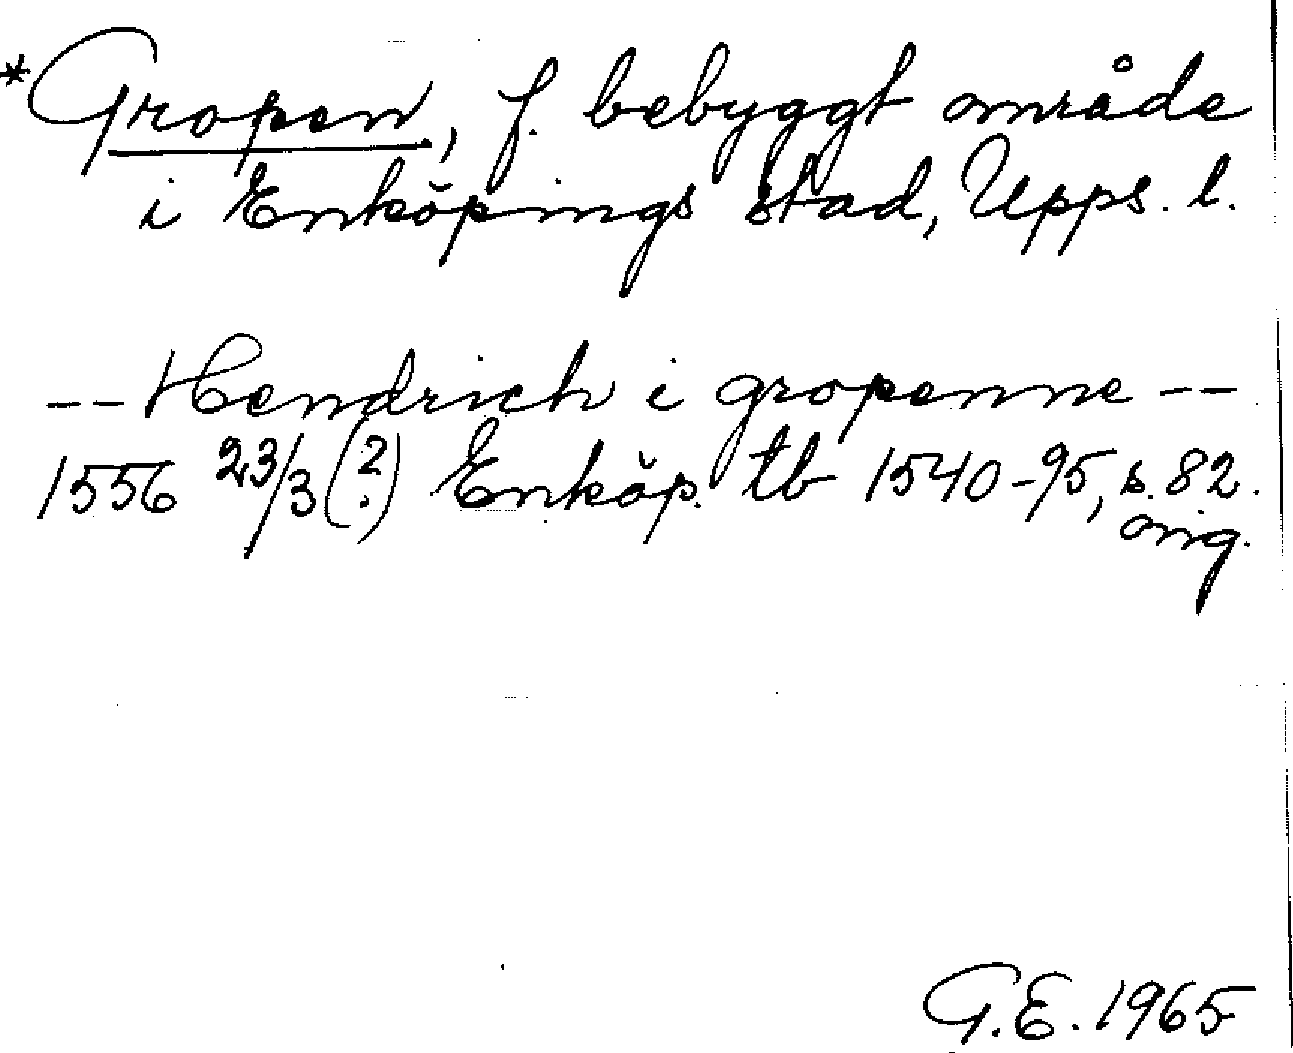 *Gropen, f. bebyggt område
i Enköpings stad, Upps. l.
-- Hendrich i gropenne --
1556 23/3 (?) Enköp. tb 1540-95, s. 82.
orig.
G.E. 1965